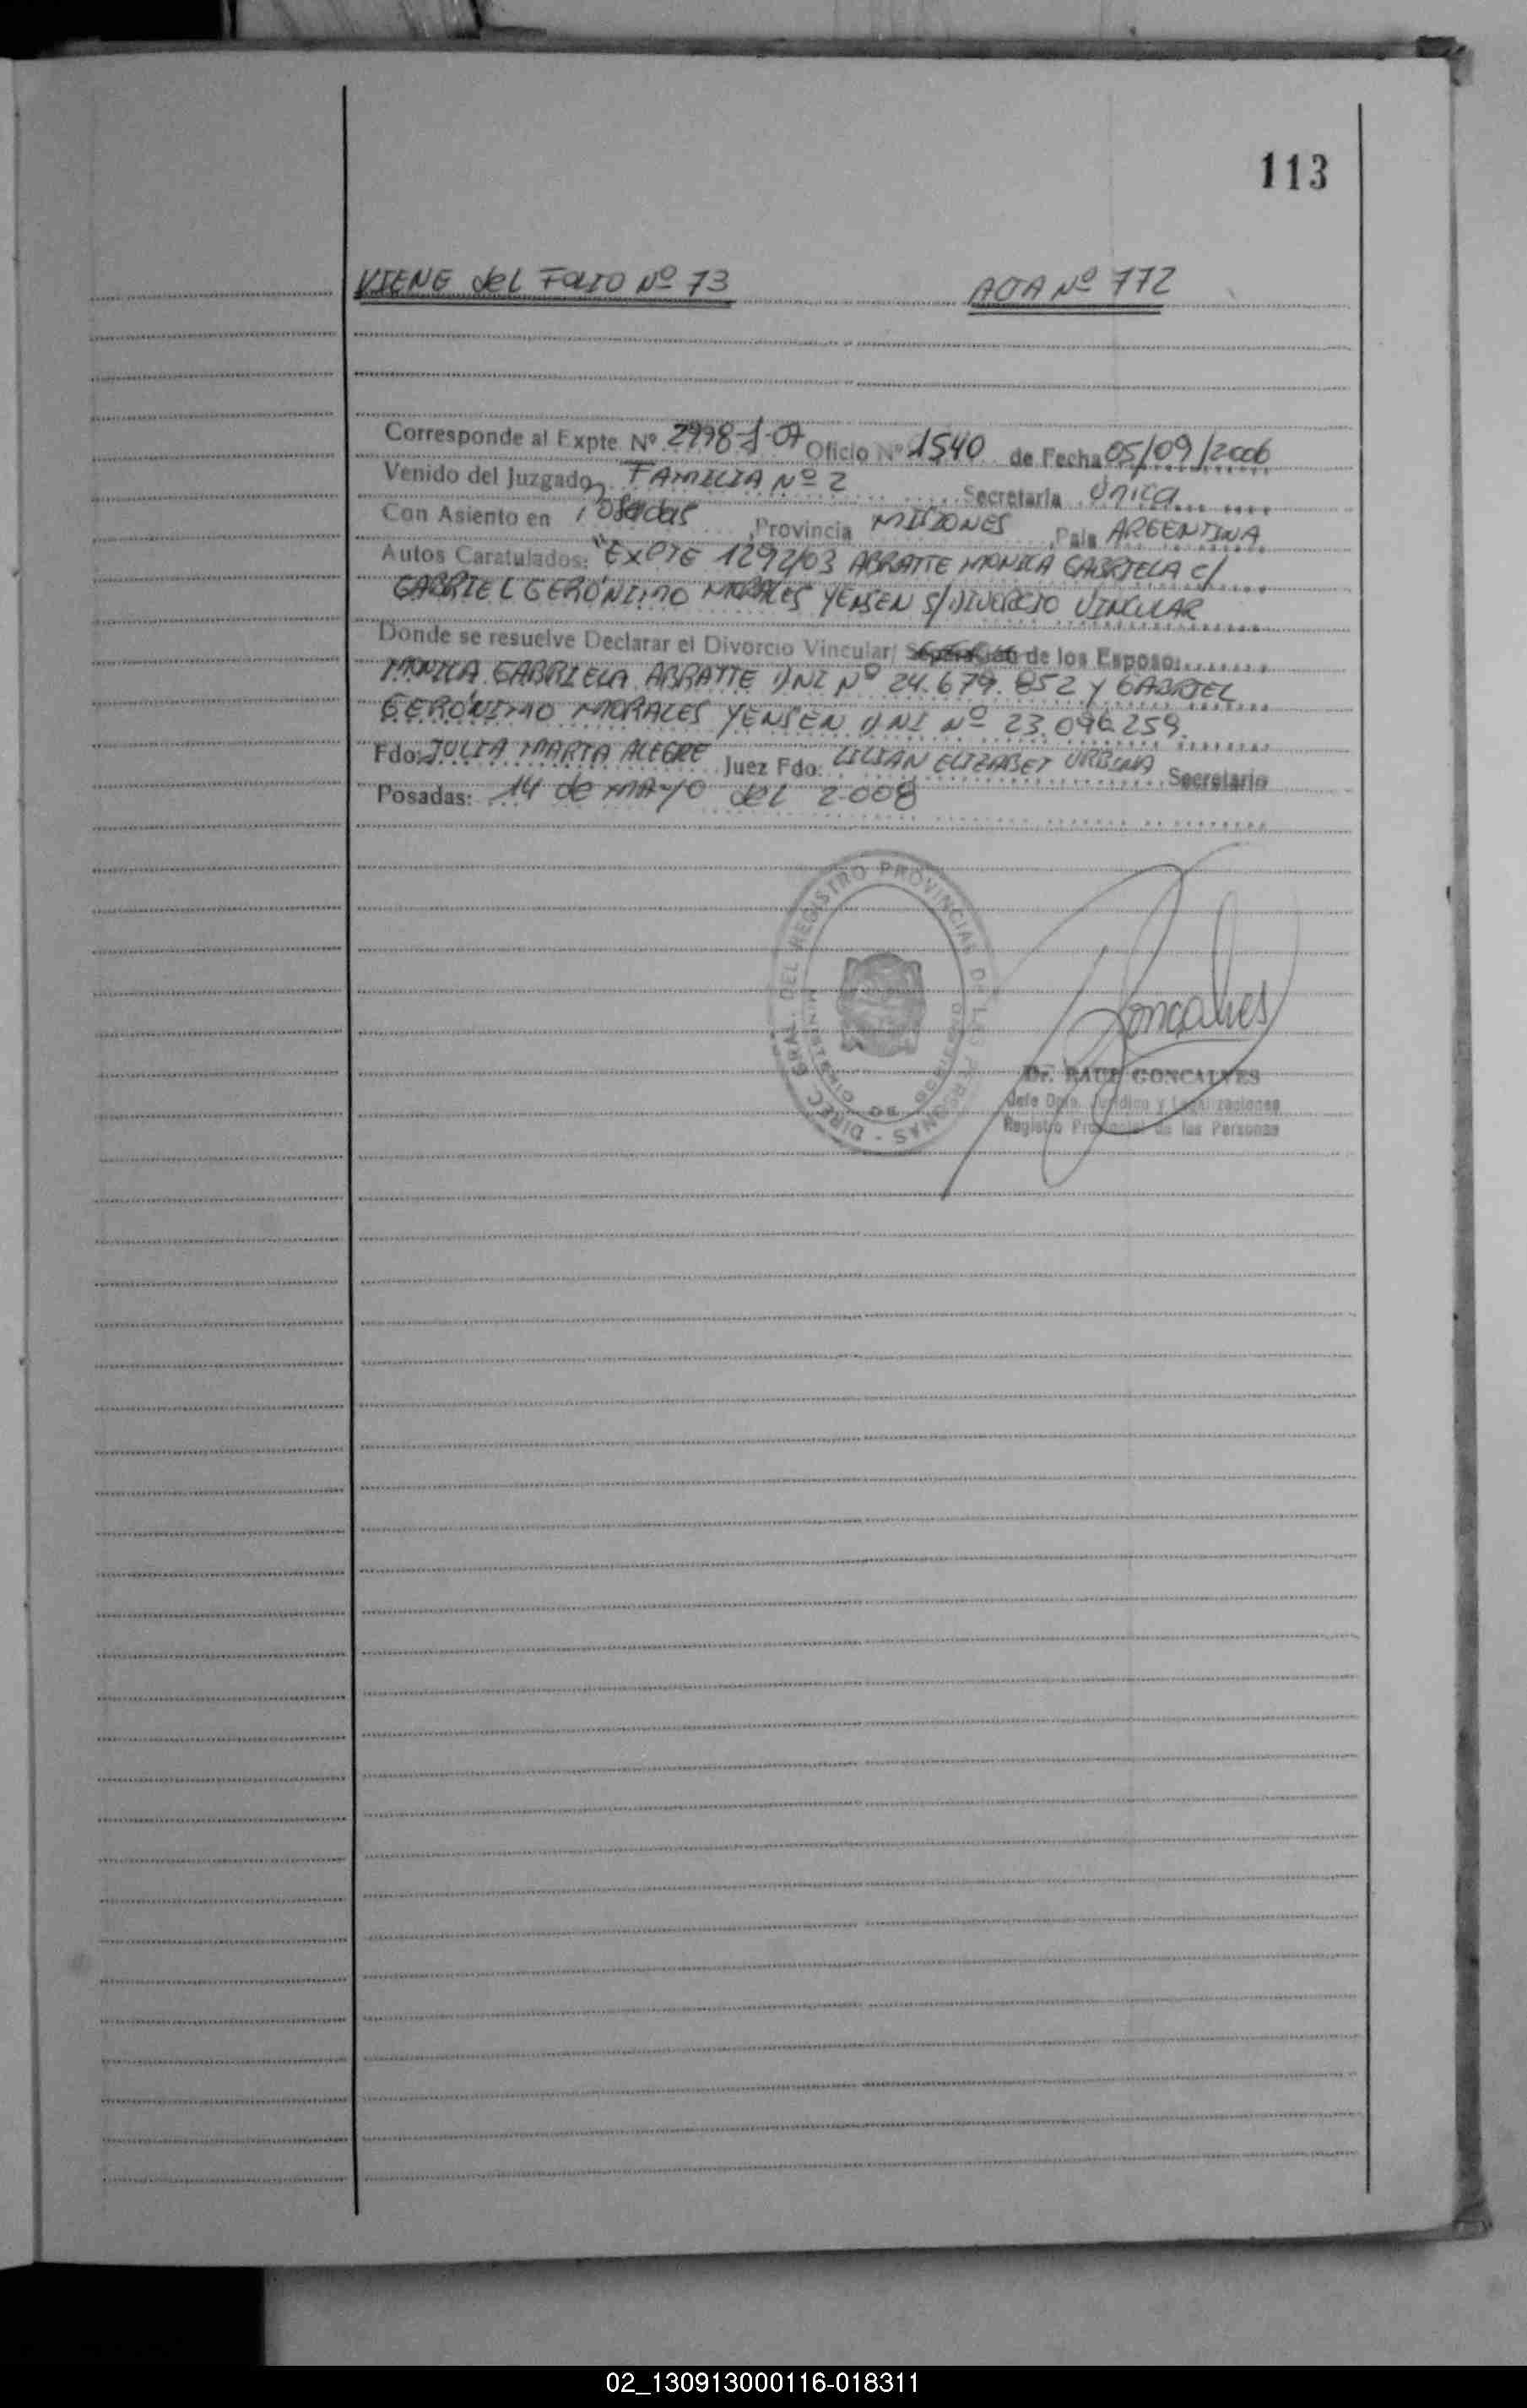 113
VIENE del FOLIO Nº 73 ACTA Nº 772
Corresponde al Expte Nº 2998-J-07 Oficio Nº 1540 de Fecha 05/09/2006
Venido del Juzgado FAMILIA Nº 2 Secretaría Única
Con Asiento en Posadas, Provincia MISIONES, País ARGENTINA
Autos Caratulados: "EXPTE 1292/03 ABRATTE MONICA GABRIELA c/
GABRIEL GERÓNIMO MORALES YENSEN S/DIVORCIO VINCULAR
Donde se resuelve Declarar el Divorcio Vincular/ Separación de los Esposo:
MONICA GABRIELA ABRATTE DNI Nº 24.679.852 Y GABRIEL
GERÓNIMO MORALES YENSEN DNI Nº 23.096.259.
Fdo: JULIA MARTA ALEGRE Juez Fdo: LILIAN ELIZABET URBINA Secretario
Posadas: 14 de MAYO del 2008
DIREC. GRAL. DEL REGISTRO PROVINCIAL DE LAS PERSONAS
MINISTERIO DE GOBIERNO
Goncalves
Dr. RAUL GONCALVES
Jefe Dpto. Jurídico y Legalizaciones
Registro Provincial de las Personas
02_130913000116-018311